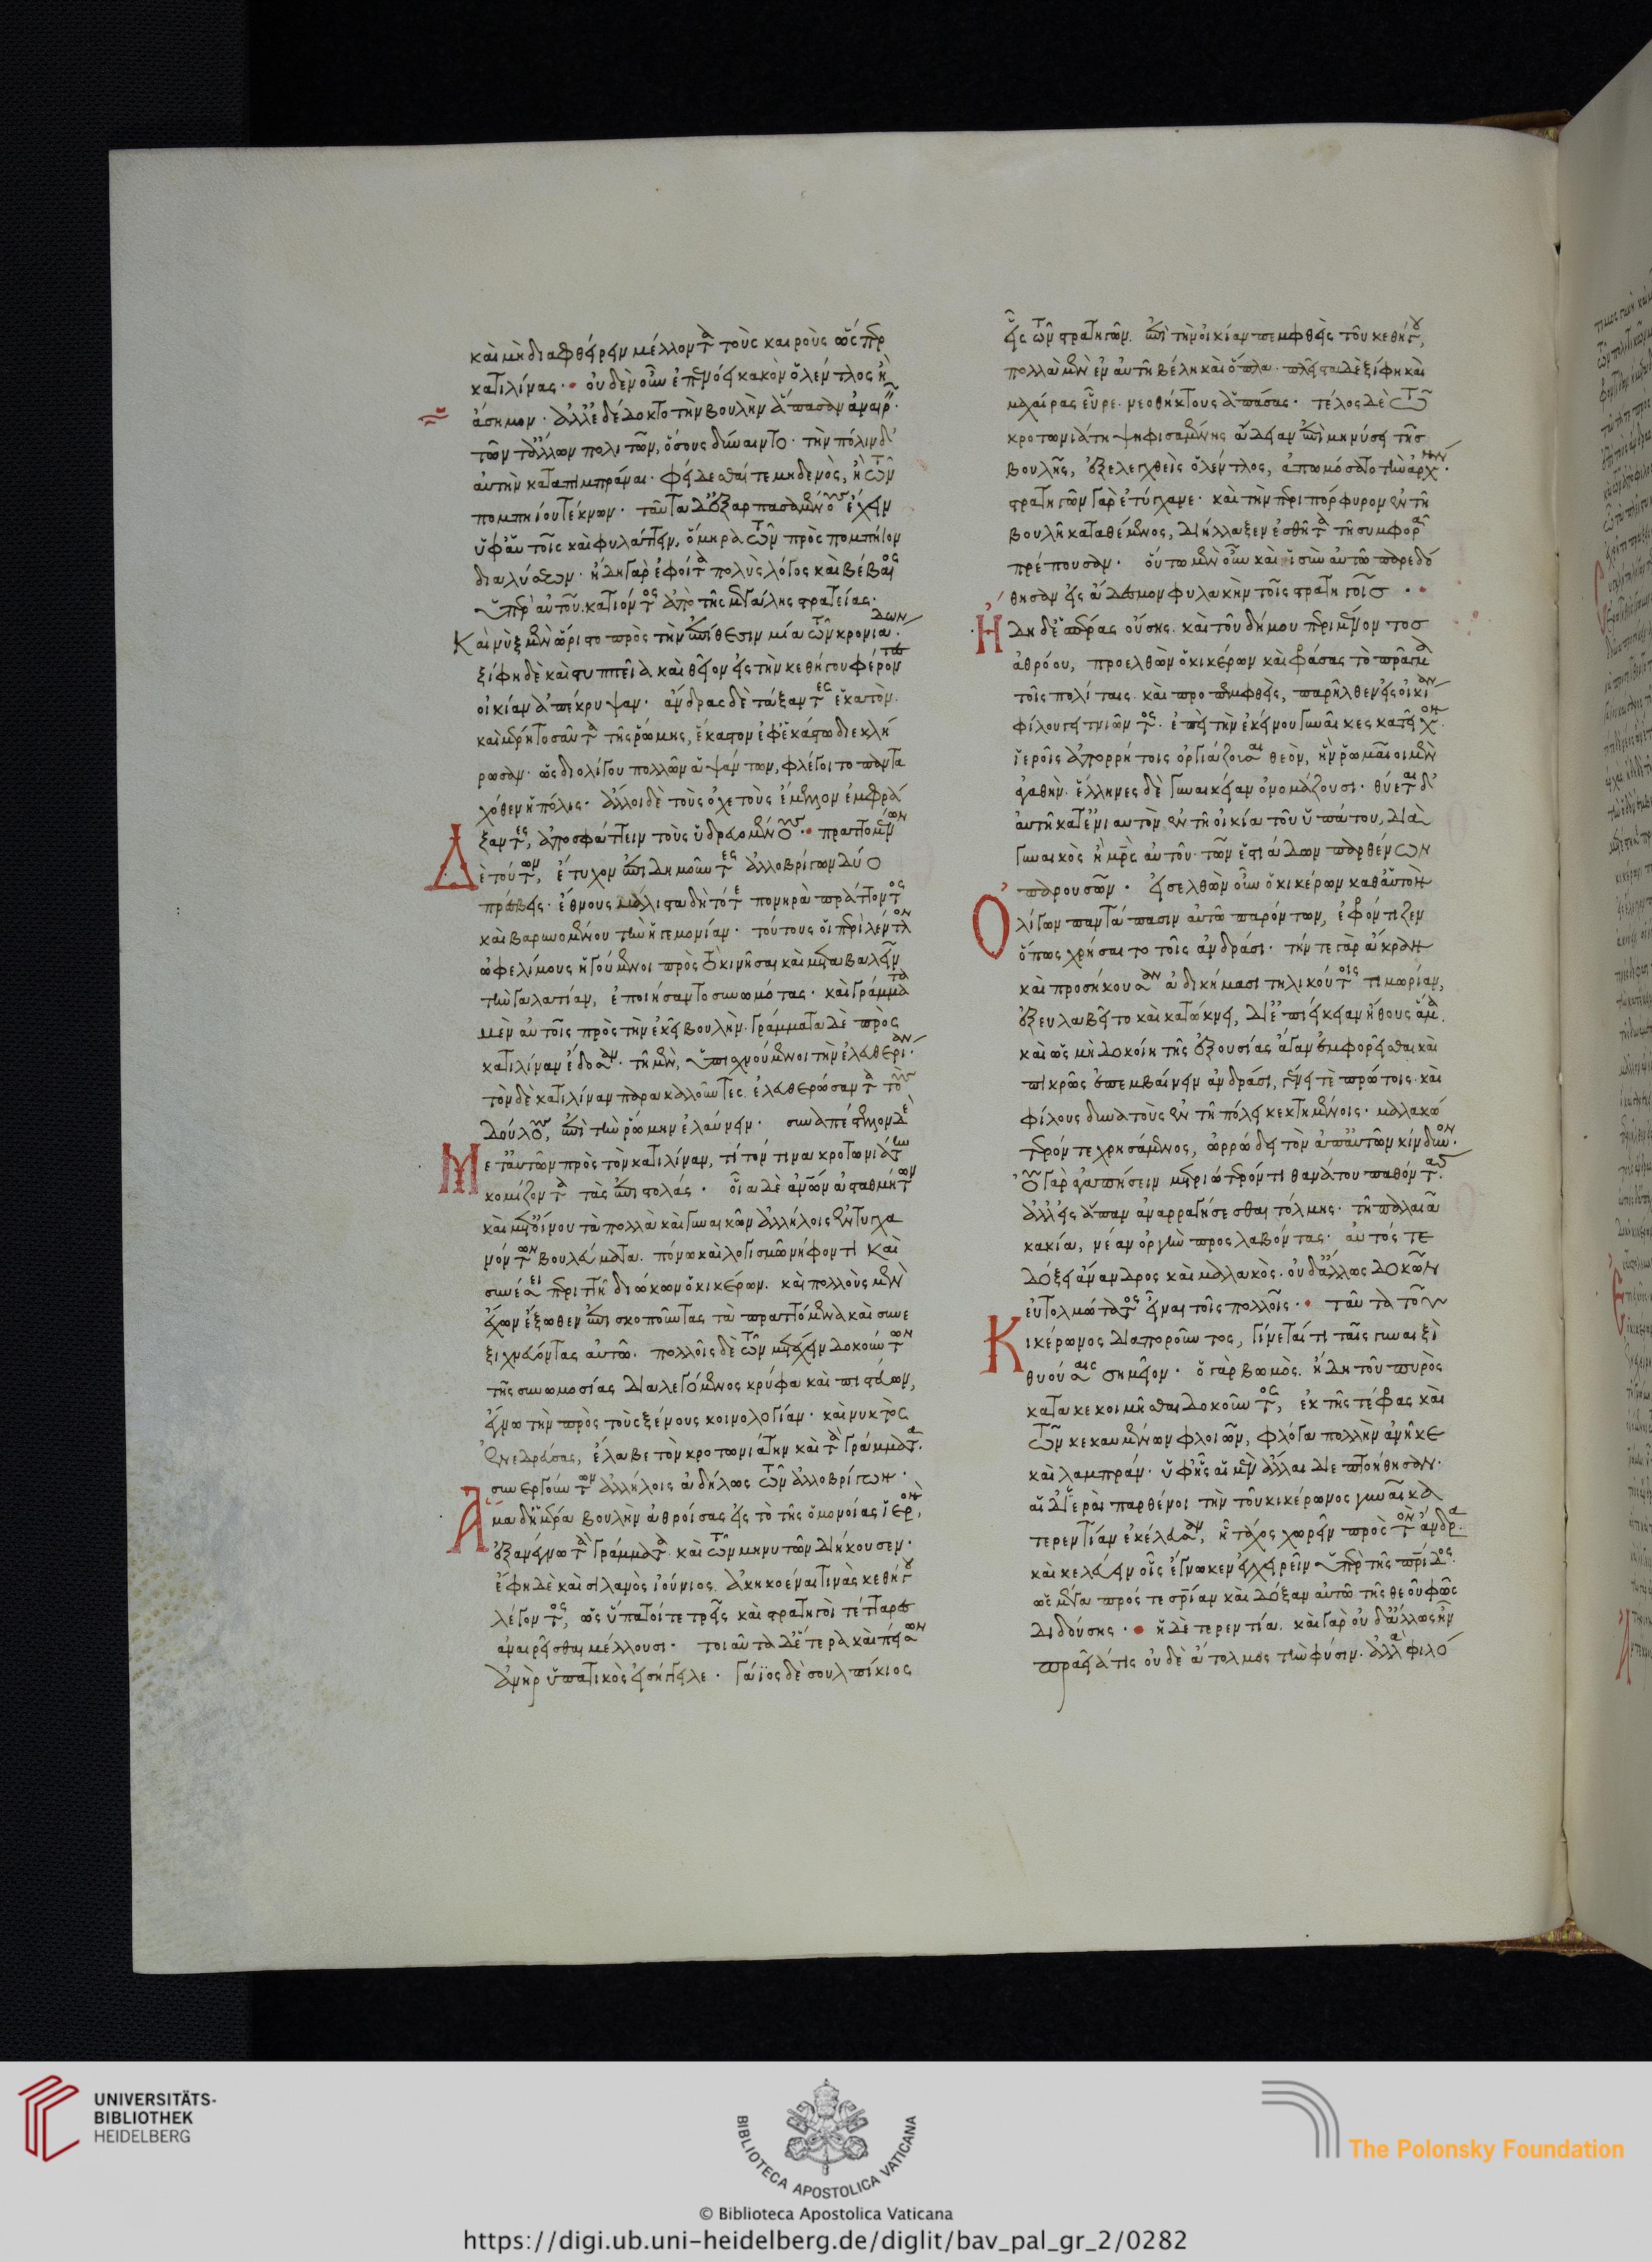 καὶ μὴ διαφθείρειν μέλλοντα τοὺς καιροὺς ὥσπερ
κατιλίνας· οὐδὲν οὖν ἐπενόει κακὸν ὁ λέντλος ἢ
ἄσημον· ἀλλ' ἐδέδοκτο τὴν βουλὴν ἅπασαν ἀναιρεῖν·
τῶν τ' ἄλλων πολιτῶν, ὅσους δύναιντο· τὴν πόλιν δ'
αὐτὴν καταπιμπράναι· φείδεσθαί τε μηδενὸς, ἢ τῶν
πομπηίου τέκνων· ταῦτα δ' ἐξαρπασαμένους ἔχειν
ὑφ' αὑτοῖς καὶ φυλάττειν, ὅμηρα τῶν πρὸς πομπήιον
διαλύσεων· ἤδη γὰρ ἐφοίτα πολὺς λόγος καὶ βέβαιος
ὑπὲρ αὐτοῦ κατιόντος ἀπὸ τῆς μεγάλης στρατείας·
Καὶ νὺξ μὲν ὥριστο πρὸς τὴν ἐπίθεσιν μία τῶν κρονιάδων·
ξίφη δὲ καὶ στυππεῖα καὶ θεῖον εἰς τὴν κεθήγου φέροντες
οἰκίαν ἀπέκρυψαν· ἄνδρας δὲ τάξαντες ἑκατὸν
καὶ μέρη τοσαῦτα τῆς ῥώμης, ἕκαστον ἐφ' ἑκάστω διεκλή
ρωσαν· ὡς δι' ὀλίγου πολλῶν ἁψάντων, φλέγοιτο πάντα
χόθεν ἡ πόλις· ἄλλοι δὲ τοὺς ὀχετοὺς ἔμελλον ἐμφρά
ξαντες, ἀποσφάττειν τοὺς ὑδρευομένους· πραττομένων
Δὲ τούτων, ἔτυχον ἐπιδημοῦντες ἀλλοβρίγων δύο
πρέσβεις· ἔθνους μάλιστα δὴ τότε πονηρὰ πράττοντος
καὶ βαρυνομένου τὴν ἡγεμονίαν· τούτους οἱ περὶ λέντλον
ὠφελίμους ἡγούμενοι πρὸς τὸ κινῆσαι καὶ μεταβαλεῖν
τὴν γαλατίαν, ἐποιήσαντο συνωμότας· καὶ γράμματα
μὲν αὐτοῖς πρὸς τὴν ἐκεῖ βουλὴν· γράμματα δὲ πρὸς
κατιλίναν ἔδοσαν· τῆ μὲν, ὑπισχνούμενοι τὴν ἐλευθερίαν·
τὸν δὲ κατιλίναν παρακαλοῦντες ἐλευθερώσαντα τοὺς
δούλους, ἐπὶ τὴν ῥώμην ἐλαύνειν· συναπέστελλον δὲ
Μετ' αὐτῶν πρὸς τὸν κατιλίναν, τίτόν τινα κροτωνιάτην
κομίζοντα τὰς ἐπιστολάς· οἷα δὲ ἀνθρώπων ἀσταθμήτων
καὶ μετ' οἴνου τὰ πολλὰ καὶ γυναικῶν ἀλλήλοις ἐντυγχα
νόντων βουλεύματα πόνω καὶ λογισμῶ νήφοντι καὶ
συνέσει περιττῆ διώκων ὁ κικέρων· καὶ πολλοὺς μὲν
ἔχων ἔξωθεν ἐπισκοποῦντας τὰ πραττόμενα καὶ συνε
ξιχνεύοντας αὐτῶ· πολλοῖς δὲ τῶν μετέχειν δοκούντων
τῆς συνωμοσίας διαλεγόμενος κρύφα καὶ πιστεύων,
ἔγνω τὴν πρὸς τοὺς ξένους κοινολογίαν· καὶ νυκτὸς
ἐνεδρεύσας, ἔλαβε τὸν κροτωνιάτην καὶ τὰ γράμματα·
συνεργούντων ἀλλήλοις ἀδήλως τῶν ἀλλοβρίγων·
Ἅμα δ' ἡμέρα βουλὴν ἀθροίσας εἰς τὸ τῆς ὁμονοίας ἱερὸν,
ἐξανέγνω τὰ γράμματα καὶ τῶν μηνυτῶν διήκουσεν·
ἔφη δὲ καὶ σιλανὸς ἰούνιος ἀκηκοέναι τινὰς κεθήγου
λέγοντος, ὡς ὕπατοί τε τρεῖς καὶ στρατηγοὶ τέτταρες
ἀναιρεῖσθαι μέλλουσι· τοιαῦτα δ' ἕτερα καὶ πείσων
ἀνὴρ ὑπατικὸς εἰσήγγειλε· γάϊος δὲ σουλπίκιος
εἷς τῶν στρατηγῶν ἐπὶ τὴν οἰκίαν πεμφθεὶς τοῦ κεθήγου,
πολλὰ μὲν ἐν αὐτῆ βέλη καὶ ὅπλα· πλεῖστα δὲ ξίφη καὶ
μαχαίρας εὗρε· νεοθήκτους ἁπάσας· τέλος δὲ τῶ
κροτωνιάτη ψηφισαμένης ἄδειαν ἐπὶ μηνύσει τῆς
βουλῆς, ἐξελεγχθεὶς ὁ λέντλος, ἀπωμόσατο τὴν ἀρχήν·
στρατηγῶν γὰρ ἐτύγχανε· καὶ τὴν περιπόρφυρον ἐν τῆ
βουλῆ καταθέμενος, διήλλαξεν ἐσθῆτα τῆ συμφορᾶ
πρέπουσαν· οὗτω μὲν οὖν καὶ οἱ σὺν αὐτῶ παρεδό
θησαν εἰς ἄδεσμον φυλακὴν τοῖς στρατηγοῖς·
Ἤδη δ' ἑσπέρας οὔσης καὶ τοῦ δήμου περιμένοντος
ἀθρόου, προελθὼν ὁ κικέρων καὶ φράσας τὸ πρᾶγμα
τοῖς πολίταις καὶ προπεμφθεὶς, παρῆλθεν εἰς οἰκίαν
φίλου γειτνιῶντος· ἐπεὶ τὴν ἐκείνου γυναῖκες κατεῖχον·
ἱεροῖς ἀπορρήτοις ὀργιάζουσαι θεὸν, ἣν ῥωμαῖοι μὲν
ἀγαθὴν· ἕλληνες δὲ γυναικείαν ὀνομάζουσι· θύεται δ'
αὐτῆ κατ' ἐνιαυτὸν ἐν τῆ οἰκία τοῦ ὑπάτου, διὰ
γυναικὸς ἢ μητρὸς αὐτοῦ· τῶν ἑστιάδων παρθένων
παρουσῶν· εἰσελθὼν οὖν ὁ κικέρων καθ' αὑτὸν
Ὀλίγων παντάπασιν αὐτῶ παρόντων, ἐφρόντιζεν
ὅπως χρήσαιτο τοῖς ἀνδράσι· τήν τε γὰρ ἄκραν
καὶ προσήκουσαν ἀδικήμασι τηλικούτοις τιμωρίαν,
ἐξευλαβεῖτο καὶ κατώκνει, δι' ἐπιείκειαν ἤθους ἅμα
καὶ ὡς μὴ δοκοίη τῆς ἐξουσίας ἄγαν ἐμφορεῖσθαι καὶ
πικρῶς ἐπεμβαίνειν ἀνδράσι, γένει τὲ πρώτοις καὶ
φίλους δυνατοὺς ἐν τῆ πόλει κεκτημένοις· μαλακώ
τερόν τε χρησάμενος, ὠρρώδει τὸν ἀπ' αὐτῶν κίνδυνον·
οὐ γὰρ ἀγαπήσειν μετριώτερόν τι θανάτου παθόντας·
ἀλλ' εἰς ἅπαν ἀναρραγήσεσθαι τόλμης· τῆ παλαιᾶ
κακία, νέαν ὀργὴν προσλαβόντας· αὐτός τε
δόξει ἄνανδρος καὶ μαλακὸς· οὐδ' ἄλλως δοκῶν
εὐτολμώτατος εἶναι τοῖς πολλοῖς· ταῦτα τοῦ
Κικέρωνος διαποροῦντος, γίνεταί τι ταῖς γυναιξὶ
θυούσαις σημεῖον· ὁ γὰρ βωμὸς ἤδη τοῦ πυρὸς
κατακεκοιμῆσθαι δοκοῦντος, ἐκ τῆς τέφρας καὶ
τῶν κεκαυμένων φλοιῶν, φλόγα πολλὴν ἀνῆκε
καὶ λαμπράν· ὑφ' ἧς αἱ μὲν ἄλλαι διεπτοήθησαν·
αἱ δ' ἱεραὶ παρθένοι τὴν τοῦ κικέρωνος γυναῖκα
τερεντίαν ἐκέλευσαν, ἧ τάχος χωρεῖν πρὸς τὸν ἄνδρα·
καὶ κελεύειν οἷς ἔγνωκεν ἐγχειρεῖν ὑπὲρ τῆς πατρίδος·
ὡς μέγα πρός τε σωτηρίαν καὶ δόξαν αὐτῶ τῆς θεοῦ φῶς
διδούσης· ἡ δὲ τερεντία· καὶ γὰρ οὐδ' ἄλλως ἦν
πραεῖά τις οὐδὲ ἄτολμος τὴν φύσιν· ἀλλὰ φιλό
UNIVERSITÄTS-
BIBLIOTHEK
HEIDELBERG
BIBLIOTECA APOSTOLICA VATICANA
The Polonsky Foundation
© Biblioteca Apostolica Vaticana
https://digi.ub.uni-heidelberg.de/diglit/bav_pal_gr_2/0282